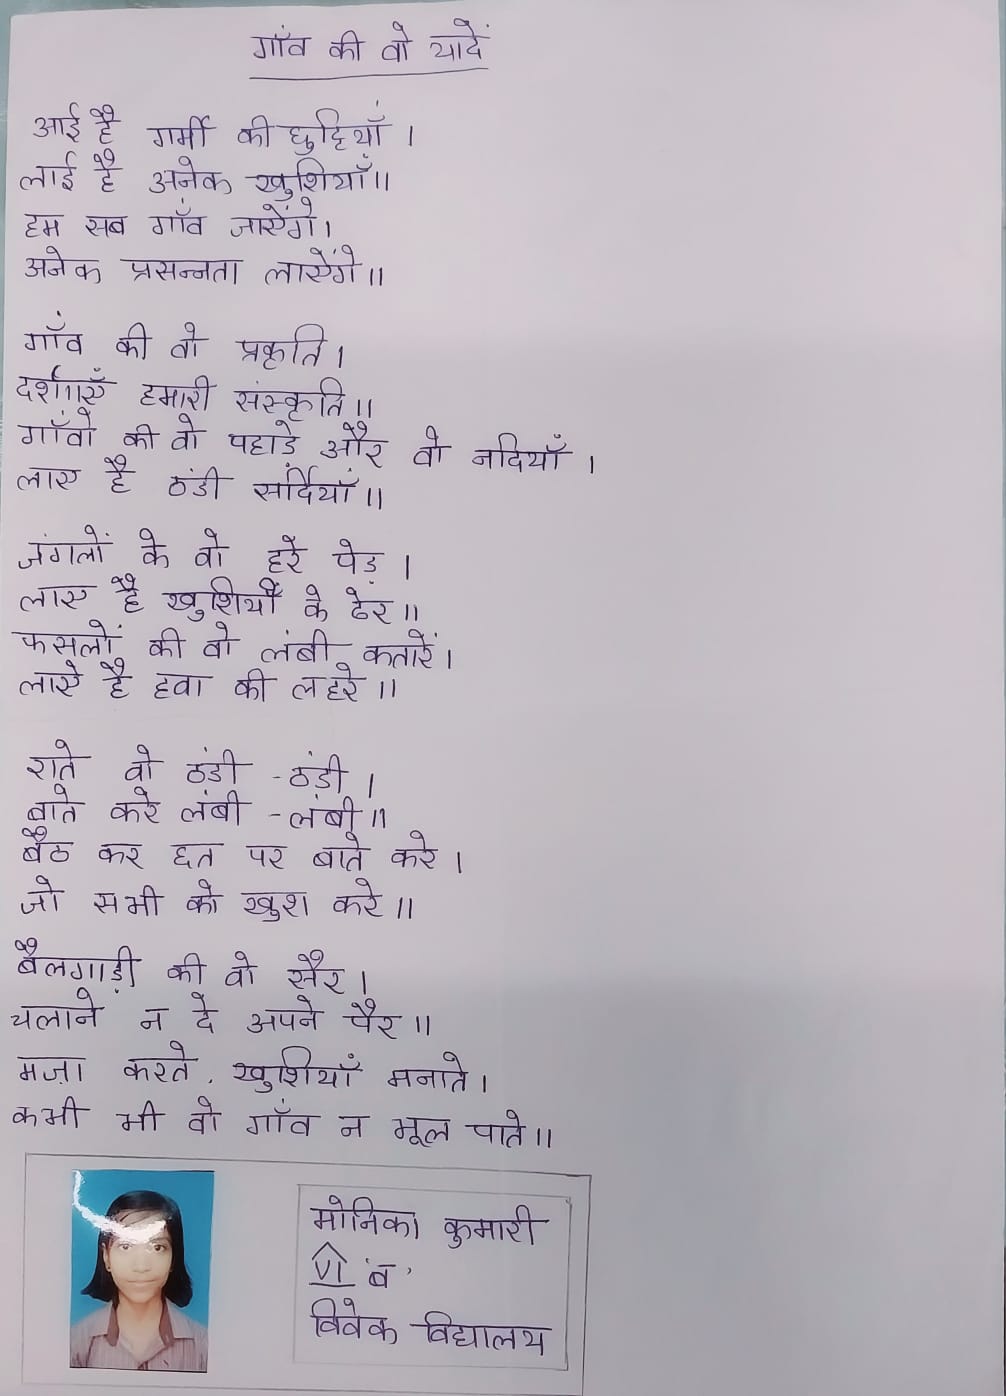 गाँव की वो यादें
आई है गर्मी की छुट्टियाँ ।
लाई है अनेक खुशियाँ॥
हम सब गाँव जाऐंगे।
अनेक प्रसन्नता लाऐंगे॥
गाँव की वो प्रकृति ।
दर्शाएँ हमारी संस्कृति॥
गाँवो की वो पहाड़े और वो नदियाँ ।
लाए है ठंडी सर्दियाँ॥
जंगलों के वो हरे पेड़ ।
लाए है खुशियों के ढेर॥
फसलों की वो लंबी कतारें।
लाऐ है हवा की लहरे॥
राते वो ठंडी - ठंडी ।
बाते करे लंबी - लंबी॥
बैठ कर छत पर बाते करे ।
जो सभी को खुश करे॥
बैलगाड़ी की वो सैर ।
चलाने न दे अपने पैर॥
मज़ा करते, खुशियाँ मनाते।
कभी भी वो गाँव न भूल पाते॥
मोनिका कुमारी
VI 'ब'
विवेक विद्यालय